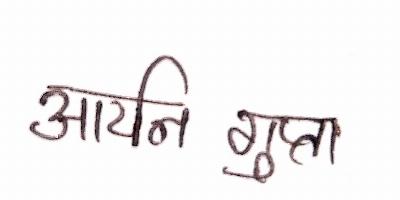 आर्यन गुप्ता